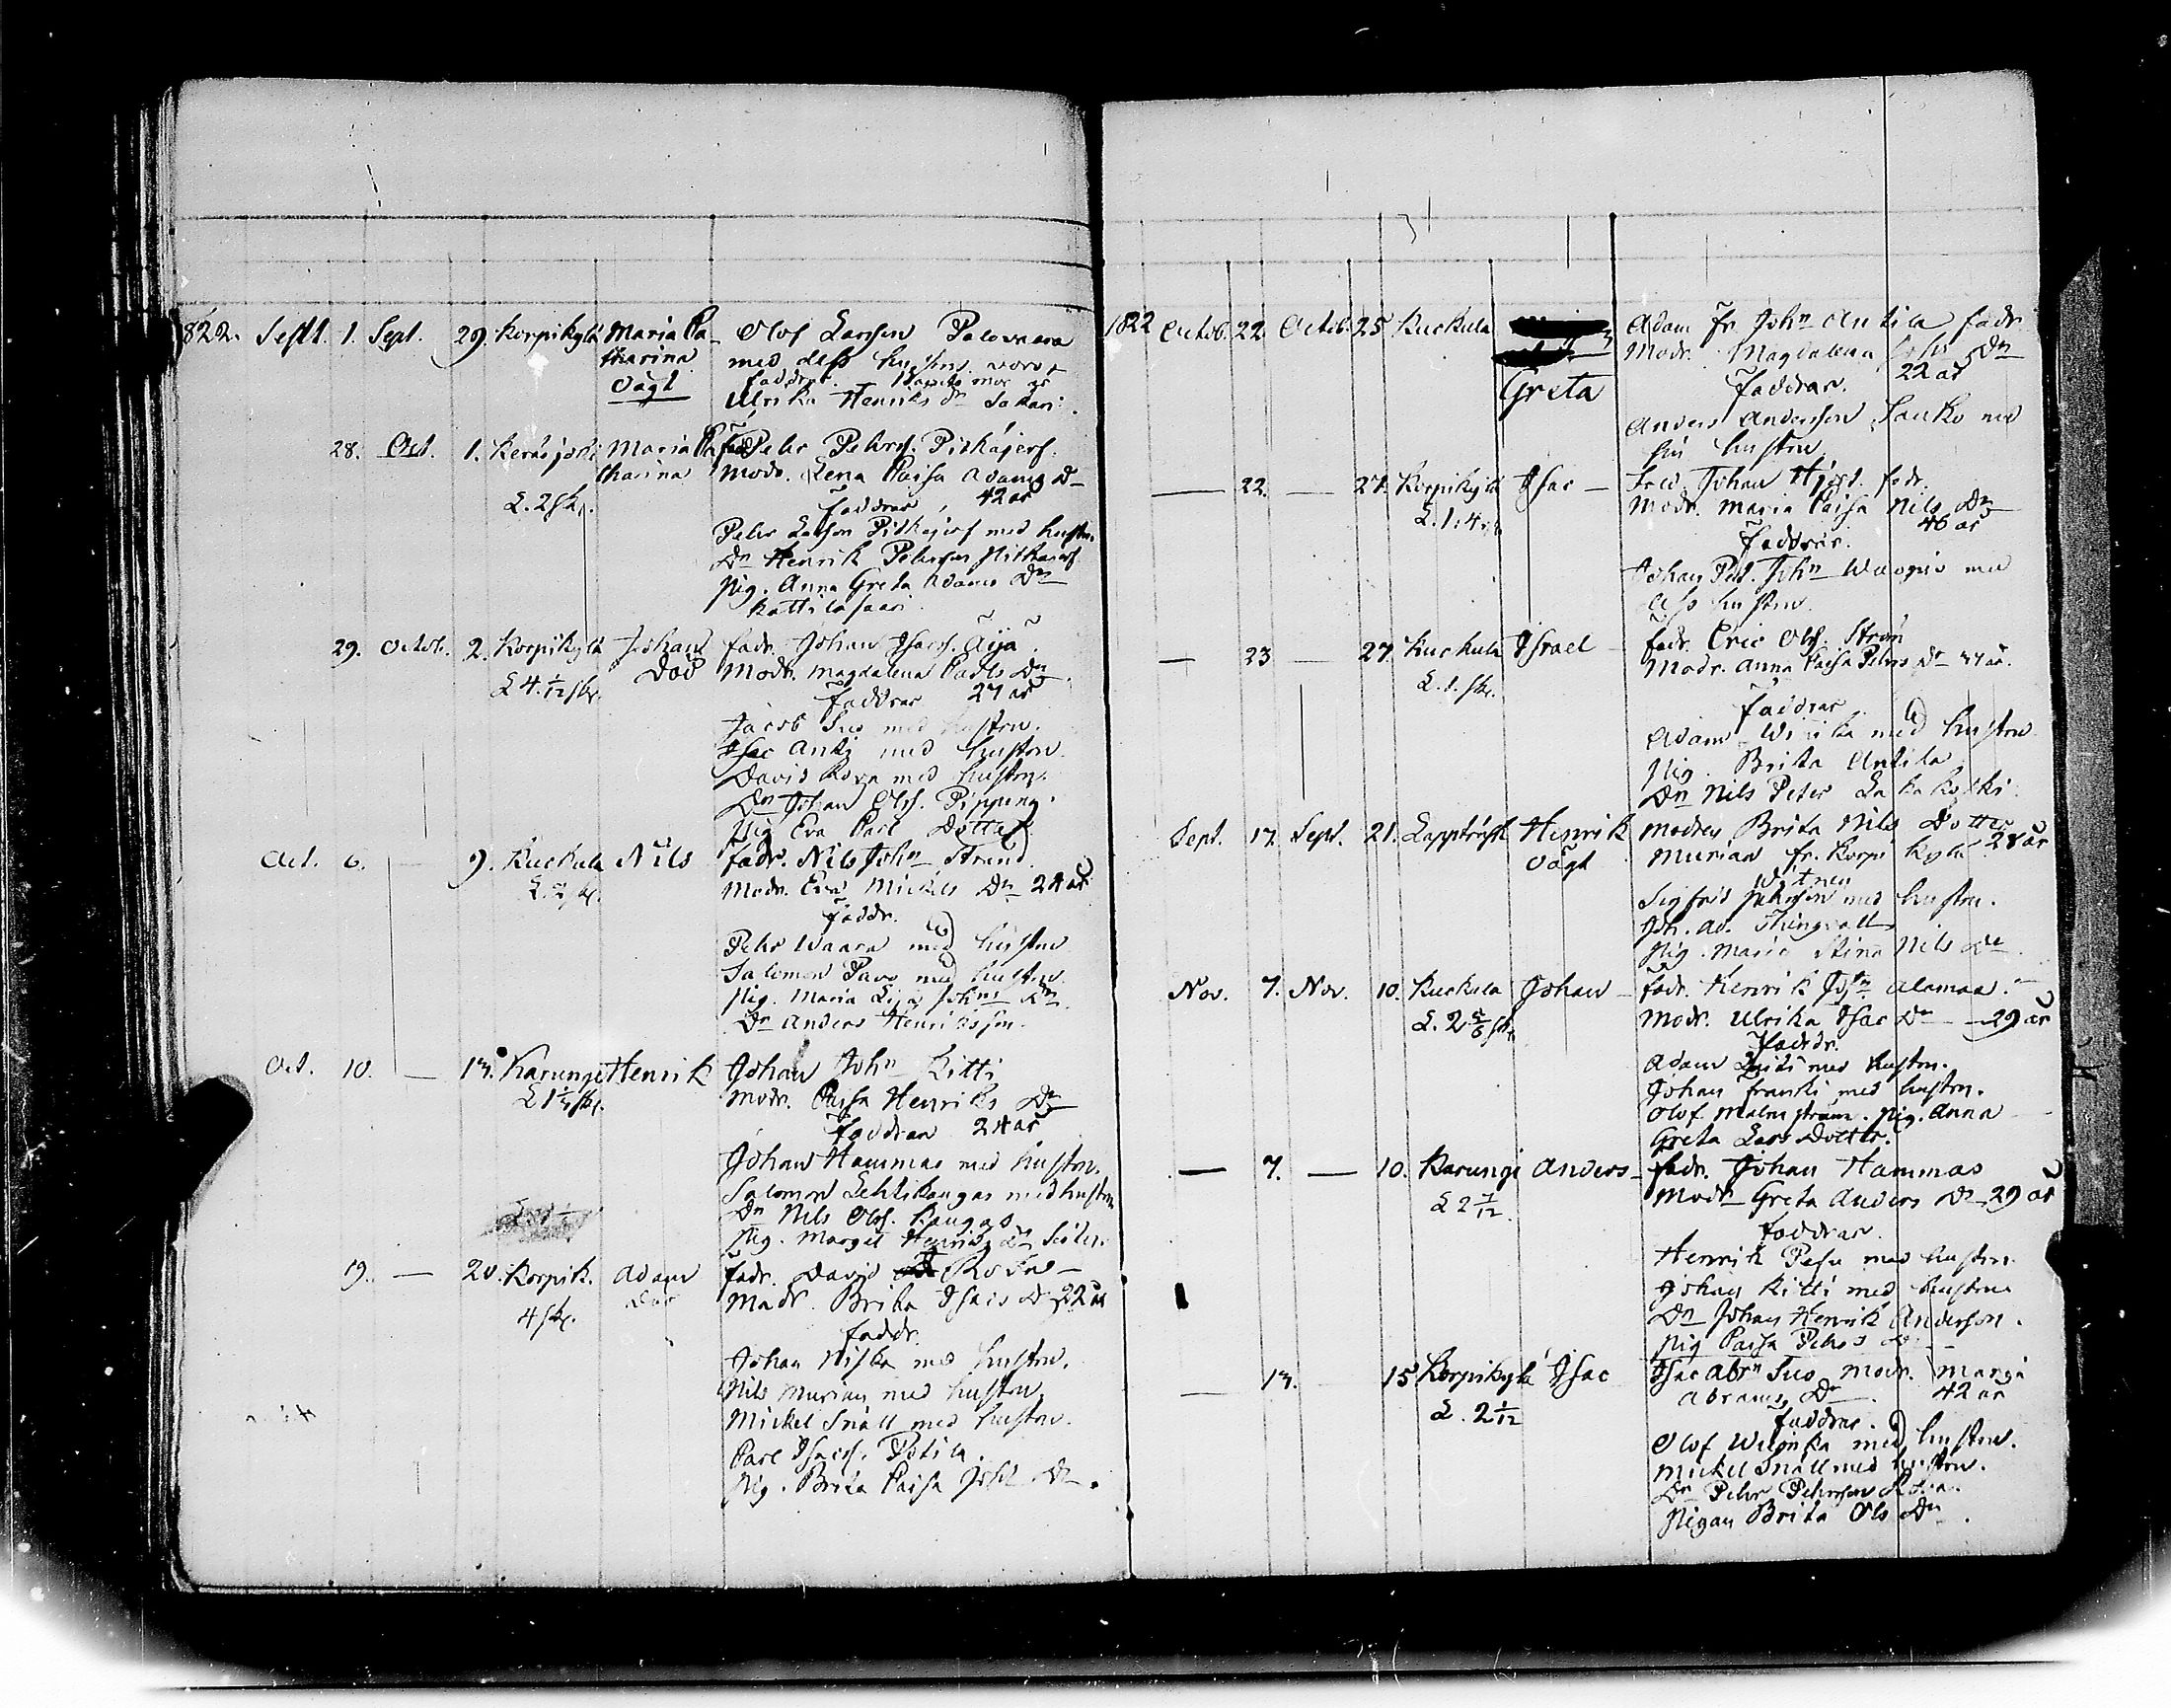 822. Sept. 1. Sept. 29. Korpikylä Maria Ca- Olof Larsson Palovaara
tharina med dess hustru
oägt faddrar.
Ulrika Henriks Dr
28. Oct. 1. Keräsjoki Maria Ca- fadr Pehr Pehrss. Pitkäjerf.
tharina Modr. Lena Caisa Adams Dr
£. 2 sk. faddrar 42 år
Pehr Larsson Pitkäjerf med hustru
Dn Henrik Pehrsson Pitkäjerf
Pig. Anna Greta Adams Dr
Kattilasaari
29. Octob. 2. Korpikylä Johan fadr. Johan Isacs. Äijä.
£ 4. 1/12 sk. Död Modr. Magdalena Carls Dr
faddrar 27 år
Jacob Suo med hustru.
Isac Anti med hustru
David Rova med hustru.
Dn Johan Olss. Pipping.
Pig Eva Carl Dotter
Oct. 6. — 9. Kuckula Nils fadr. Nils John Strand
£. 2 sk. Modr. Eva Mickels Dr 24 år
faddr.
Pehr Waara med hustru
Salomon Pavo med hustru
Pig. Maria Lisa Johns Dr.
Dn Anders Henriksson.
Oct. 10. — 13. Karungi Henrik Johan John Kitti
Modr. Caisa Henriks Dr
faddrar 24 år
Johan Hammas med hustru.
Salomon Lehtikangas med hustru
Dn Nils Olss. Kangas
Pig. Margit Henriks Dr
19. — 20. Korpik. Adam fadr. David
4 sk. Död Modr. Brita Isacs Dr 22 år
faddr.
Johan Niska med hustru.
Nils Murian med hustru
Mickel Snäll med hustru.
Carl Isacs. Potila.
Pig. Brita Caisa Joh Dr.
1822 Octob. 22. Octob. 25. Kuckula Adam fr. John Antila fadr
Modr. Magdalena Johs Dr
Greta faddrar. 22 år
Anders Andersson Lauko med
sin hustru
— 22. — 27. Korpikylä Isac — Johan Hjort. fadr.
£. 1:4 Modr. Maria Caisa Nils Dr
46 år
faddrar.
Johan John Waapio med
dess hustru
— 23 — 27. Kuckula Israel — fadr. Eric Olss. Ström
£. 1. sk. Modr. Anna Caisa Pehrs Dr år.
faddrar
Adam med hustru
Pig. Brita Antila
Dn Nils Peter
Sept. 17. Sept. 21. Lappträsk Henrik Modren Brita Nils Dotter
oägt Murian fr. Korpikylä 28 år
Witnen
Sigfrid Johansson med hustru.
Joh. Ad. Thingvall
Pig. Maria Stina Nils Dr
Nov. 7. Nov. 10. Kuckula Johan — fadr. Henrik John Alamaa.
£. 2 sk. Modr. Ulrika Isac Dr — 29 år
faddr.
Adam med hustru.
Johan Franki med hustru.
Olof Malmström. Pig. Anna
Greta Lars Dotter.
— 7. — 10. Karungi Anders — fadr. Johan Hammas
£ 2 1/12 Modr Greta Anders Dr 29 år
faddrar.
Henrik Pesu med hustru.
Johan Kitti med hustru
Dn Johan Henrik Anderson.
Pig Caisa Pehrs Dr
— 13. 15 Korpikylä Isac Isac Abrn Suo Modr. Margr
£. 2 1/12 Abrams Dr. 42 år
faddrar.
Olof med hustru.
Mickel Snäll med hustru.
Dn Pehr Pehrsson
Pigan Brita Ols Dr.